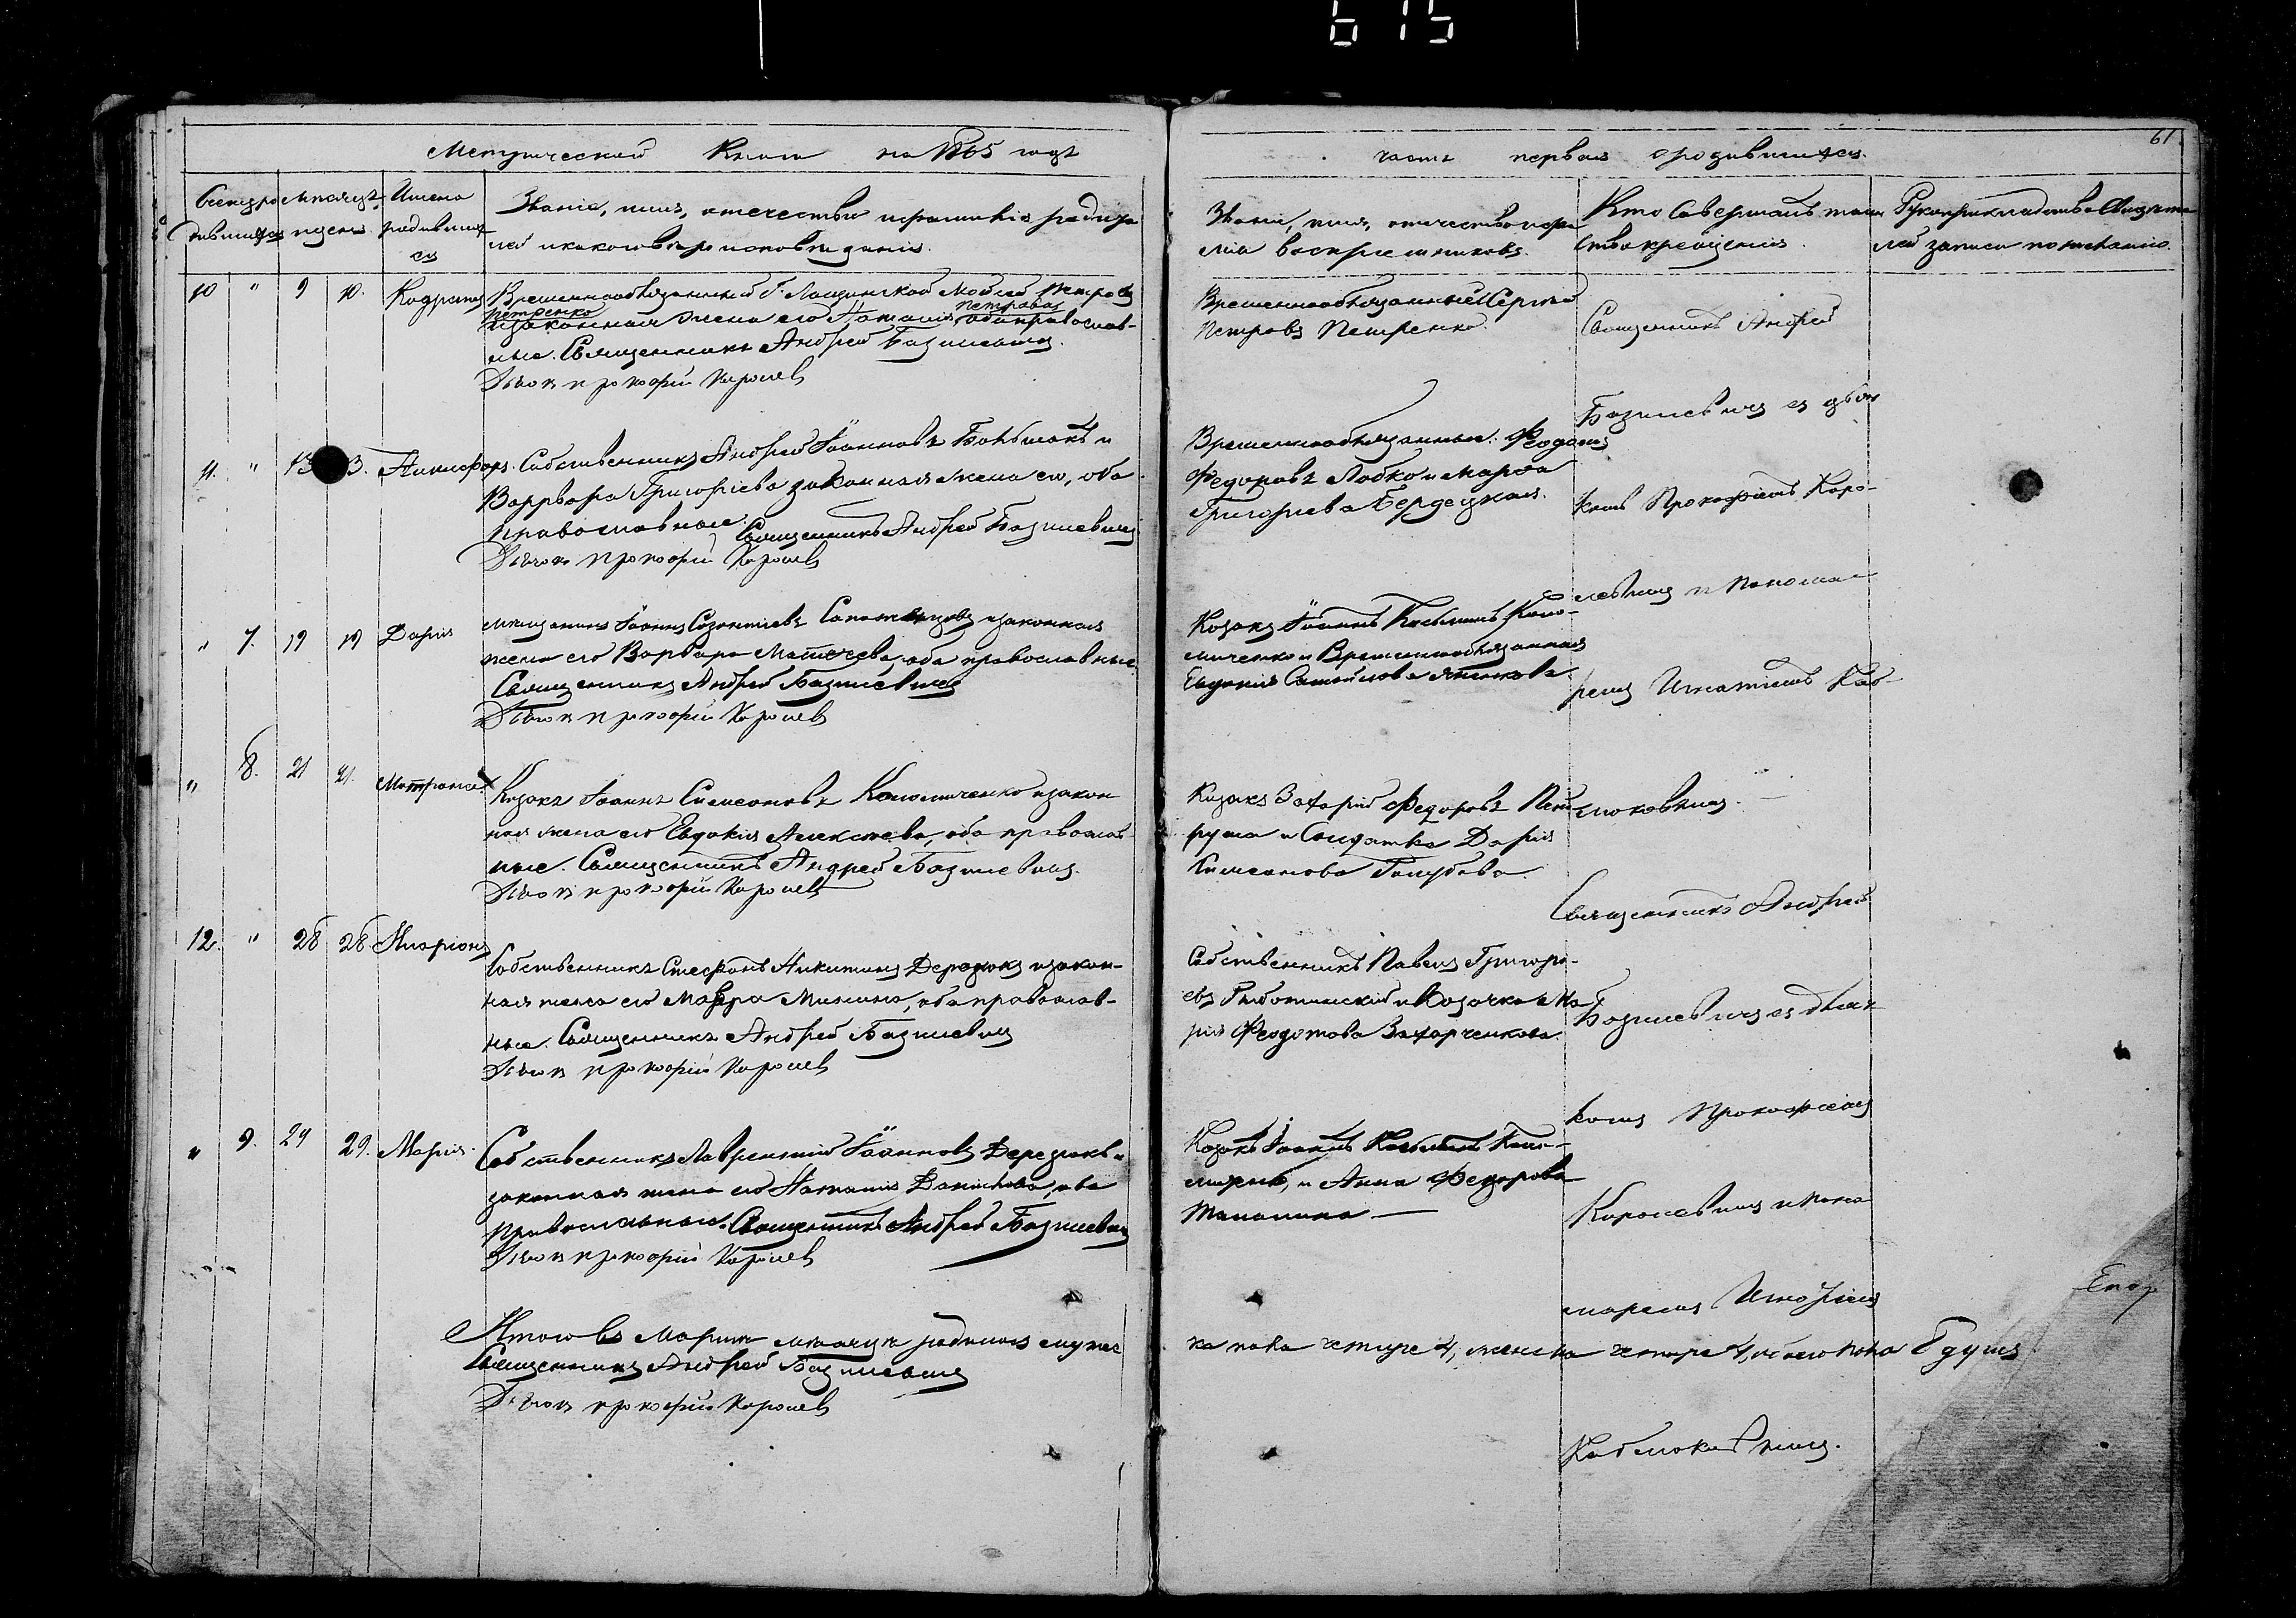 615
61
Метрической Книги на 1865 годъ
часть первая о родившихся.
Счетъ родившихся
Мѣсяцъ и день
Имена родившихся
Званіе, имя, отечество и фамилія родите
лей и какого вѣроисповѣданія.
Званіе, имя, отечество и фами
лія воспріемниковъ.
Кто совершалъ таин
ство крещенія.
Рукоприкладство свидѣте
лей записи по желанію.
10 " 9 10. Кодратъ
Временнообязанный Г. Мойсей Петровъ
Петренко Петрова
и законная жена его Наталія оба православ-
ные. Священникъ Андрей Базилевичъ.
Дьячокъ Прокофій Королев
Временнообязанный Сергій
Петровъ Петренко.
Священникъ Андрей
Базилевичъ съ дьяч
11. " 13 13. Никифоръ.
Собственникъ Андрей Іоанновъ и
Варвара Григоріева законная жена его, оба
православные. Священникъ Андрей Базилевичъ
Дьячокъ Прокофій Королев
Временнообязанные: Феодосій
Федоровъ Лобко и Марѳа
Григорьева Бердецкая.
комъ Прокофіемъ Коро-
левичъ и Понома-
" 7. 19 19 Дарія
Мѣщанинъ Іоаннъ и законная
жена его Варвара Матвѣева, оба православные
Священникъ Андрей Базилевичъ
Дьячокъ Прокофій Королев
Козакъ Іоаннъ Косьминъ Коло-
мiченко и Временнообязанная
Евдокія Самойлова
ремъ Игнатіемъ Каб-
люковымъ.
" 8. 21 21. Матрона
Козакъ Іоаннъ Симеоновъ Коломiченко и закон
ная жена его Евдокія Алексѣева, оба православ-
ные. Священникъ Андрей Базилевичъ.
Дьячокъ Прокофій Королев
Козакъ Захарій Федоровъ
и Солдатка Дарія
Симеонова Голубова.
Священникъ Андрей
12. " 28 28 Иларіонъ
Собственникъ Стефанъ Никитинъ Дерезюкъ и закон-
ная жена его Мавра Минина, оба православ-
ные. Священникъ Андрей Базилевичъ
Дьячокъ Прокофій Королев
Собственникъ Павелъ Григорі-
евъ и Козачка Ма
рія Феодотова Захарченкова.
Базилевичъ съ дьяч
комъ Прокофіемъ
" 9. 29 29. Марія.
Собственникъ Лаврентій Іоанновъ Дерезюкъ и
законная жена его Наталія Данилова, оба
Православные. Священникъ Андрей Базилевичъ
Дьячокъ Прокофій Королев
Козакъ Іоаннъ Косьминъ
и Анна Федорова
Королевичъ и Поно
маремъ
Итого въ Мартѣ мѣсяцѣ родилось мужес
ка пола четыре 4, женска четыре 4, обоего пола 8 душъ
Священникъ Андрей Базилевичъ
Дьячокъ Прокофій Королев
Каблюковымъ.